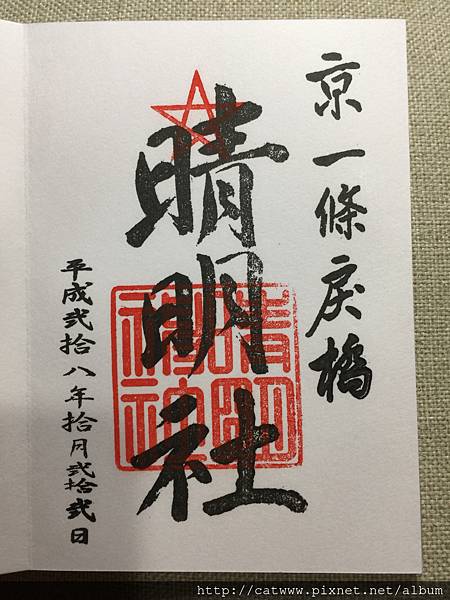 京一條戻橋
晴明社
晴明
神社
平成弐拾八年拾月弐拾弐日
http://catwww.pixnet.net/album